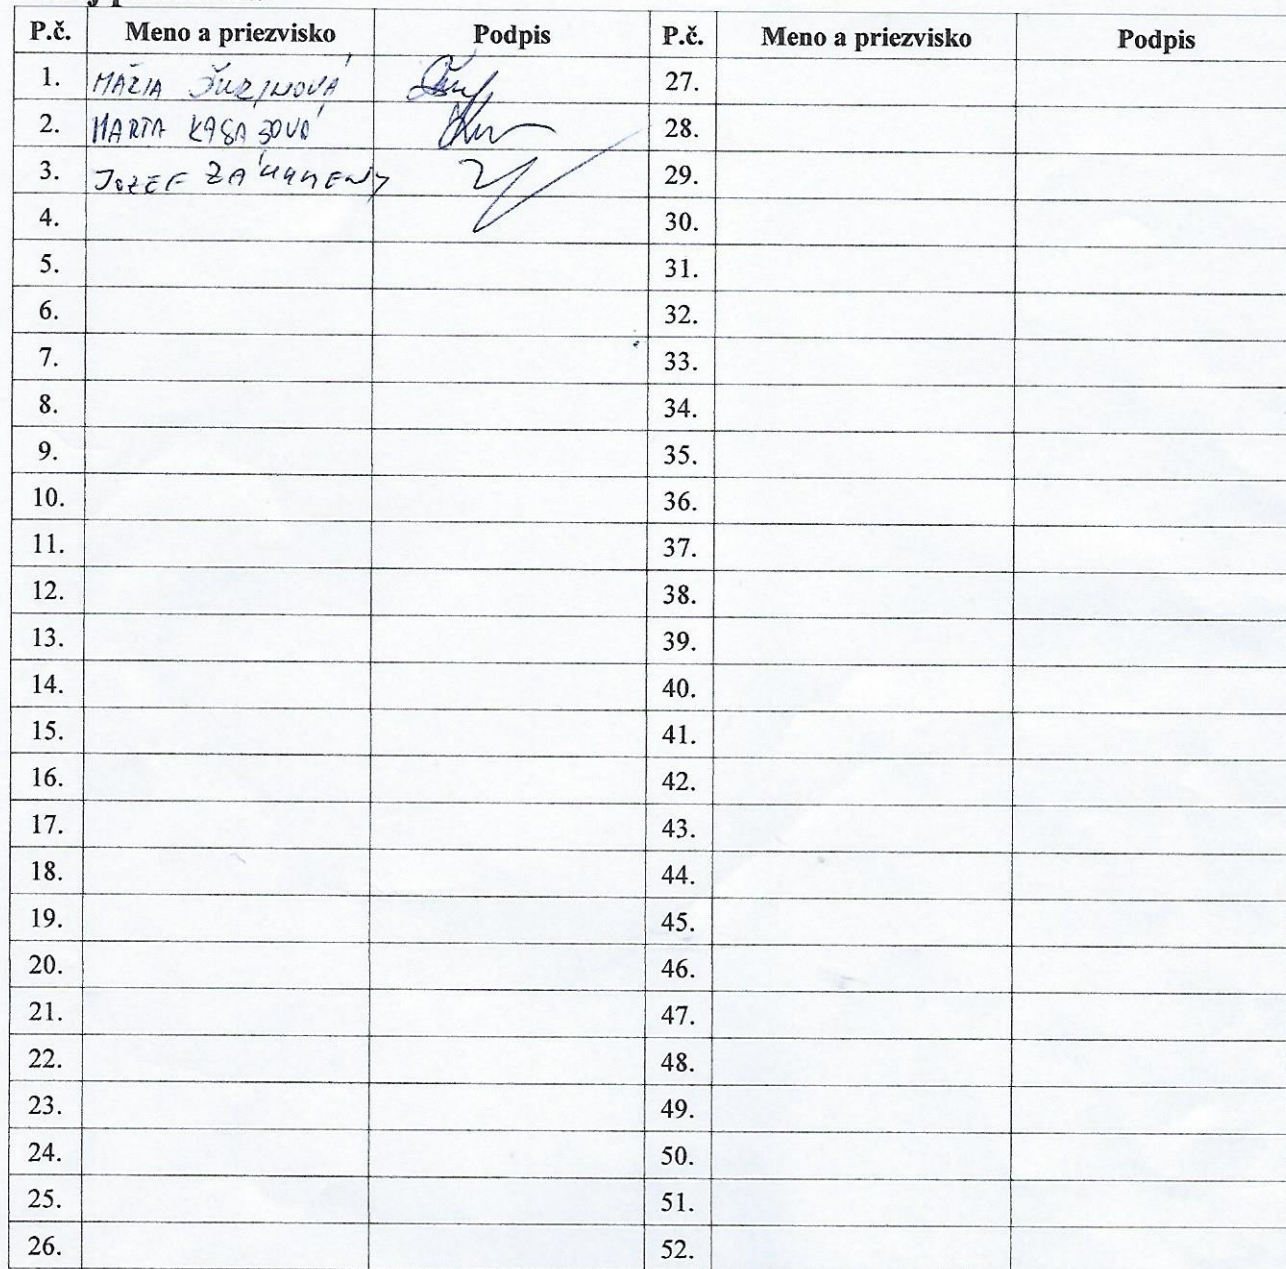 P.č. Meno a priezvisko Podpis P.č. Meno a priezvisko Podpis
1. MÁRIA ĎURINOVÁ 27.
2. MARTA 28.
3. JOZEF 29.
4. 30.
5. 31.
6. 32.
7. 33.
8. 34.
9. 35.
10. 36.
11. 37.
12. 38.
13. 39.
14. 40.
15. 41.
16. 42.
17. 43.
18. 44.
19. 45.
20. 46.
21. 47.
22. 48.
23. 49.
24. 50.
25. 51.
26. 52.